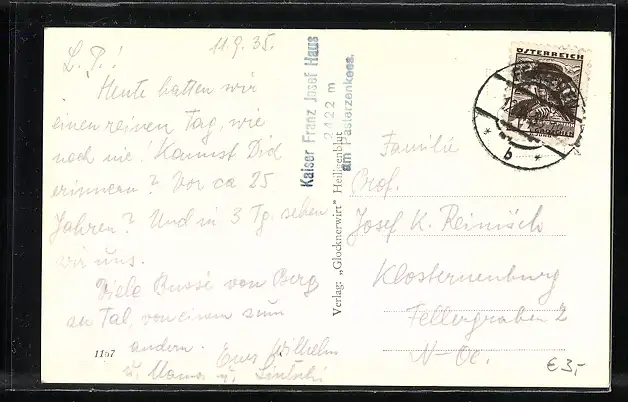 11.9.35.
L. P.!
Heute hatten wir
einen reinen Tag, wie
noch nie! Kannst Dich
erinnern? Vor ca 25
Jahren? Und in 3 Tg. sehen
wir uns.
Viele Bussi von Berg
zu Tal, von einem zum
andern. Euer Wilhelm
u. Mama u.
1107
Kaiser Franz Josef Haus
2422 m
am Pasterzenkees.
Verlag: „Glocknerwirt" Heiligenblut
ÖSTERREICH
b
Familie
Prof.
Josef K. Reinisch
Klosterneuburg
Fellergraben 2
N-Oe.
€ 3,-